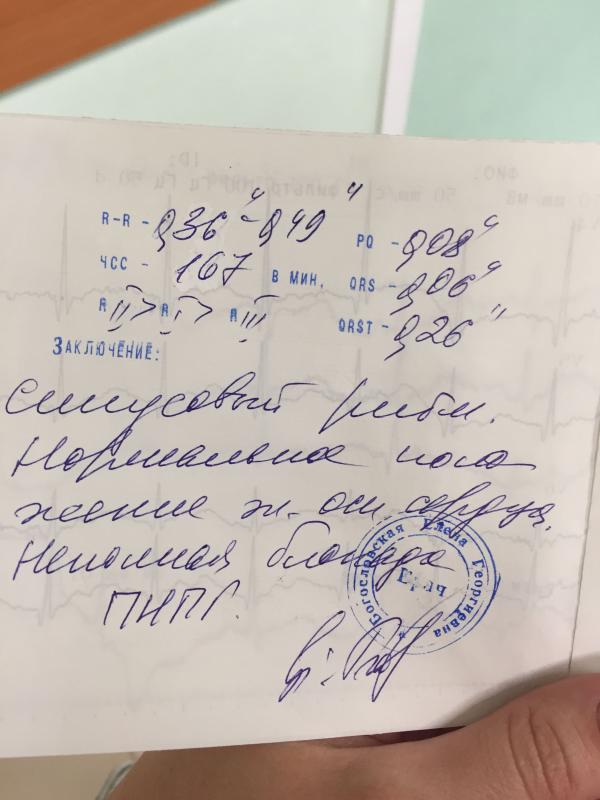 R-R - 0,36" - 0,49" PQ - 0,08"
ЧСС - 167 В МИН. QRS - 0,06"
R II > R I > R III QRST - 0,26"
ЗАКЛЮЧЕНИЕ:
синусовый ритм.
Нормальное поло
жение эл. оси сердца.
Неполная блокада
ПНПГ.
Богословская Елена Георгиевна
Врач